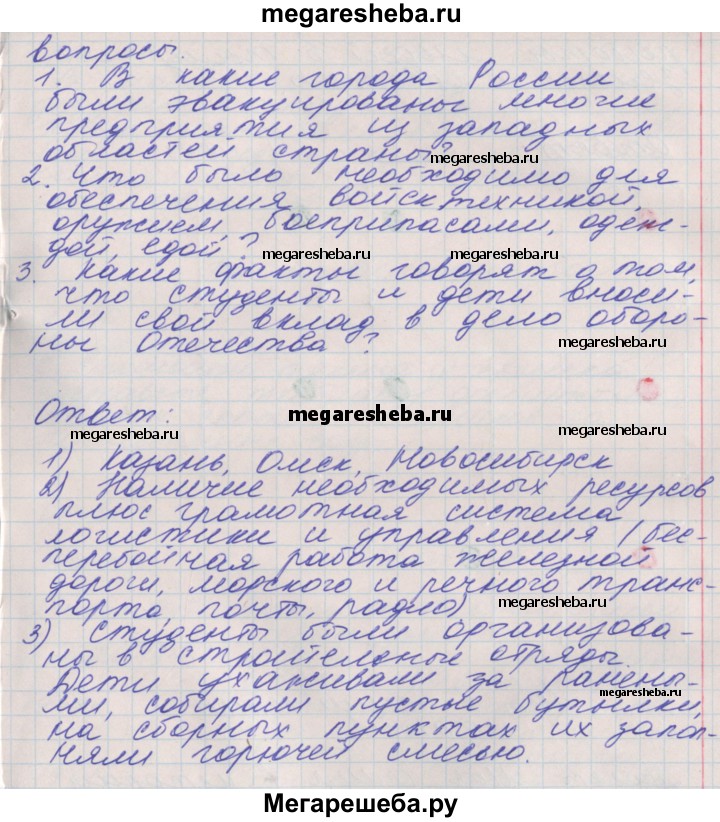 megaresheba.ru
вопросы.
1. В какие города России
были эвакуированы многие
предприятия из западных
областей страны?
megaresheba.ru
2. Что было необходимо для
обеспечения войск техникой,
оружием, боеприпасами, одеж-
дой, едой?
megaresheba.ru megaresheba.ru
3. Какие факты говорят о том,
что студенты и дети вноси-
ли свой вклад в дело оборо-
ны Отечества?
megaresheba.ru
Ответ:
megaresheba.ru
megaresheba.ru
1) Казань, Омск, Новосибирск
2) Наличие необходимых ресурсов
плюс грамотная система
логистики и управления (бес-
перебойная работа железной
дороги, морского и речного транс-
порта, почты, радио)
megaresheba.ru
3) Студенты были организова-
ны в строительные отряды.
Дети ухаживали за ранены-
ми, собирали пустые бутылки,
megaresheba.ru
на сборных пунктах их запол-
няли горючей смесью.
Мегарешеба.ру